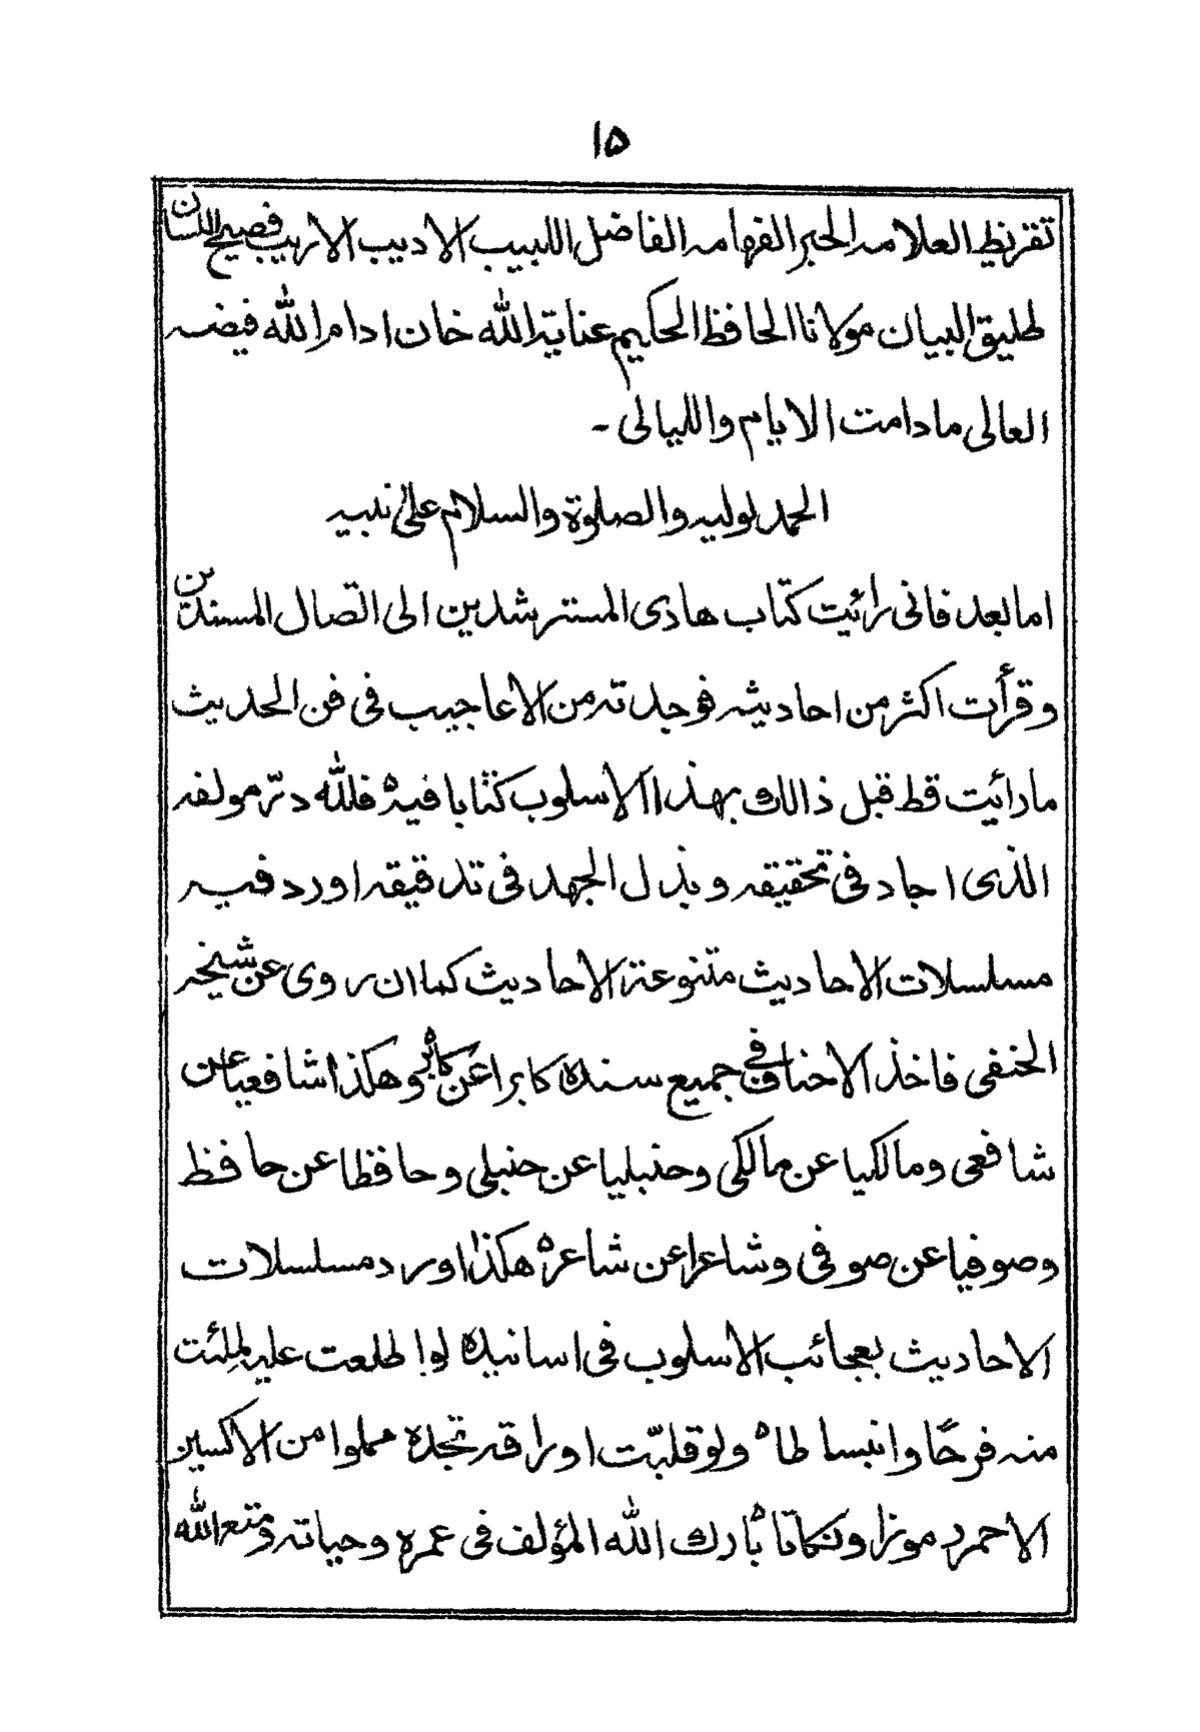 ١۵
تقريظ العلامہ الحبر الفہامہ الفاضل اللبيب الاديب الاريب فصيح اللسان
طليق البيان مولانا الحافظ الحكيم عناية الله خان ادام الله فيضہ
العالى مادامت الايام والليالى ۔
الحمد لوليہ والصلوة والسلام علىٰ نبيہ
اما بعد فانى رائيت كتاب هادى المسترشدين الى اتصال المسندين
وقرأت اكثر من احاديثہ فوجدتہ من الاعاجيب فى فن الحديث
مارائيت قط قبل ذالك بهذا الاسلوب كتابا فيہ فللّٰه درّ مولفہ
الذى اجاد فى تحقيقہ وبذل الجهد فى تدقيقہ اورد فيہ
مسلسلات الاحاديث متنوعة الاحاديث كما ان روى عن شيخہ
الحنفى فاخذ الاحناف فى جميع سنده كابرا عن كابر وهكذا شافعيا عن
شافعى ومالكيا عن مالكى وحنبليا عن حنبلى وحافظا عن حافظ
وصوفيا عن صوفى وشاعرا عن شاعر ه هكذا اورد مسلسلات
الاحاديث بعجائب الاسلوب فى اسانيده لو اطلعت عليہ لملئت
منہ فرحًا وانبساطا ه ولو قلبّت اوراقہ تجده مملوا من الاكسير
الاحمر رموزا ونكاتا ه بارك الله المؤلف فى عمره وحياتہ ومتع الله